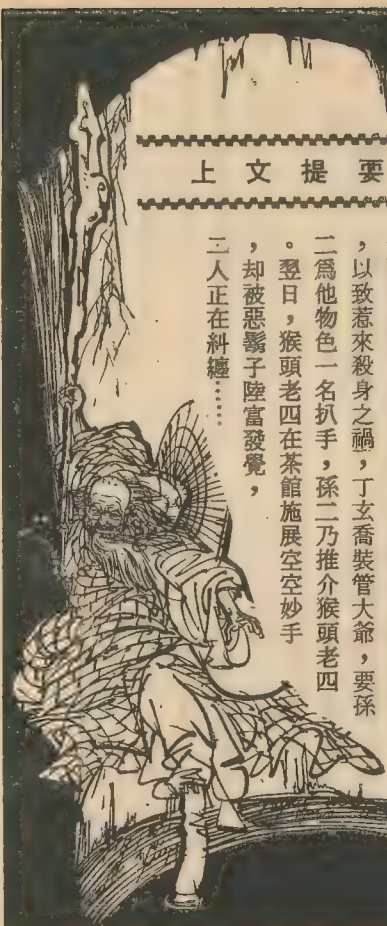 上文提要
，以致惹來殺身之禍，丁玄喬裝管大爺，要孫
二爲他物色一名扒手，孫二乃推介猴頭老四
。翌日，猴頭老四在茶館施展空空妙手
，却被惡鬍子陸富發覺，
二人正在糾纏……